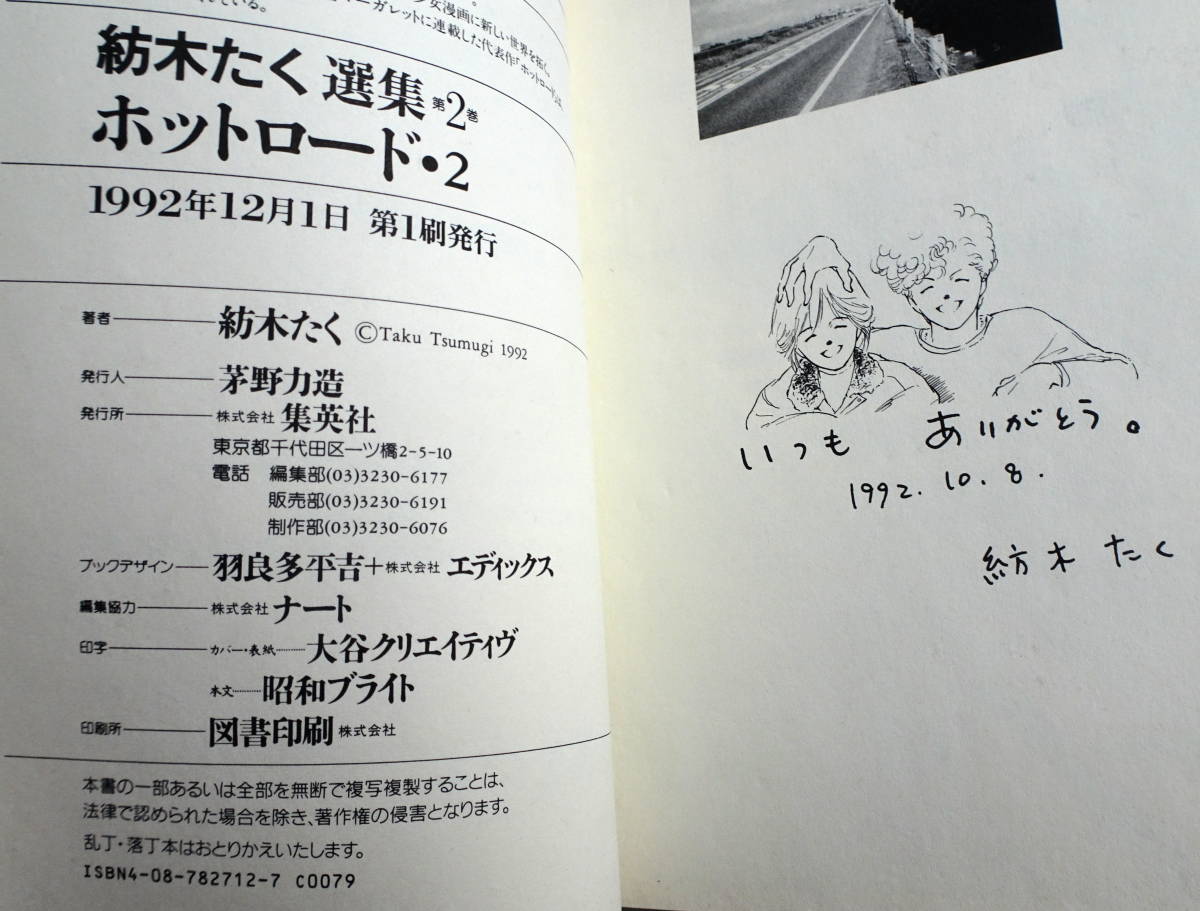 女漫画に新しい世界を拓い
ーガレットに連載した代表作「ホットロード」
ている。
紡木たく 選集 第2巻
ホットロード・2
1992年12月1日 第1刷発行
著者 紡木たく ©Taku Tsumugi 1992
発行人 茅野力造
発行所 株式会社 集英社
東京都千代田区一ツ橋2-5-10
電話 編集部(03)3230-6177
販売部(03)3230-6191
制作部(03)3230-6076
ブックデザイン 羽良多平吉+株式会社 エディックス
編集協力 株式会社 ナート
印字 カバー・表紙 大谷クリエイティヴ
本文 昭和ブライト
印刷所 図書印刷 株式会社
本書の一部あるいは全部を無断で複写複製することは、
法律で認められた場合を除き、著作権の侵害となります。
乱丁・落丁本はおとりかえいたします。
ISBN4-08-782712-7 C0079
いつも ありがとう。
1992.10.8.
紡木たく